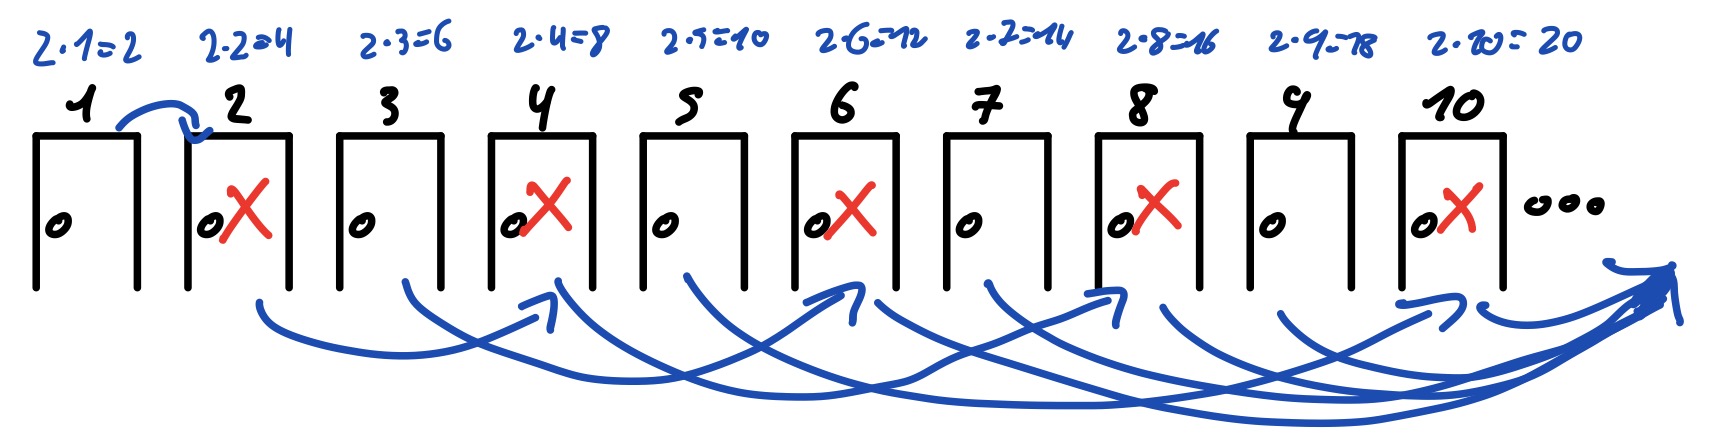 2·1=2 2·2=4 2·3=6 2·4=8 2·5=10 2·6=12 2·7=14 2·8=16 2·9=18 2·10=20
1 2 3 4 5 6 7 8 9 10
...